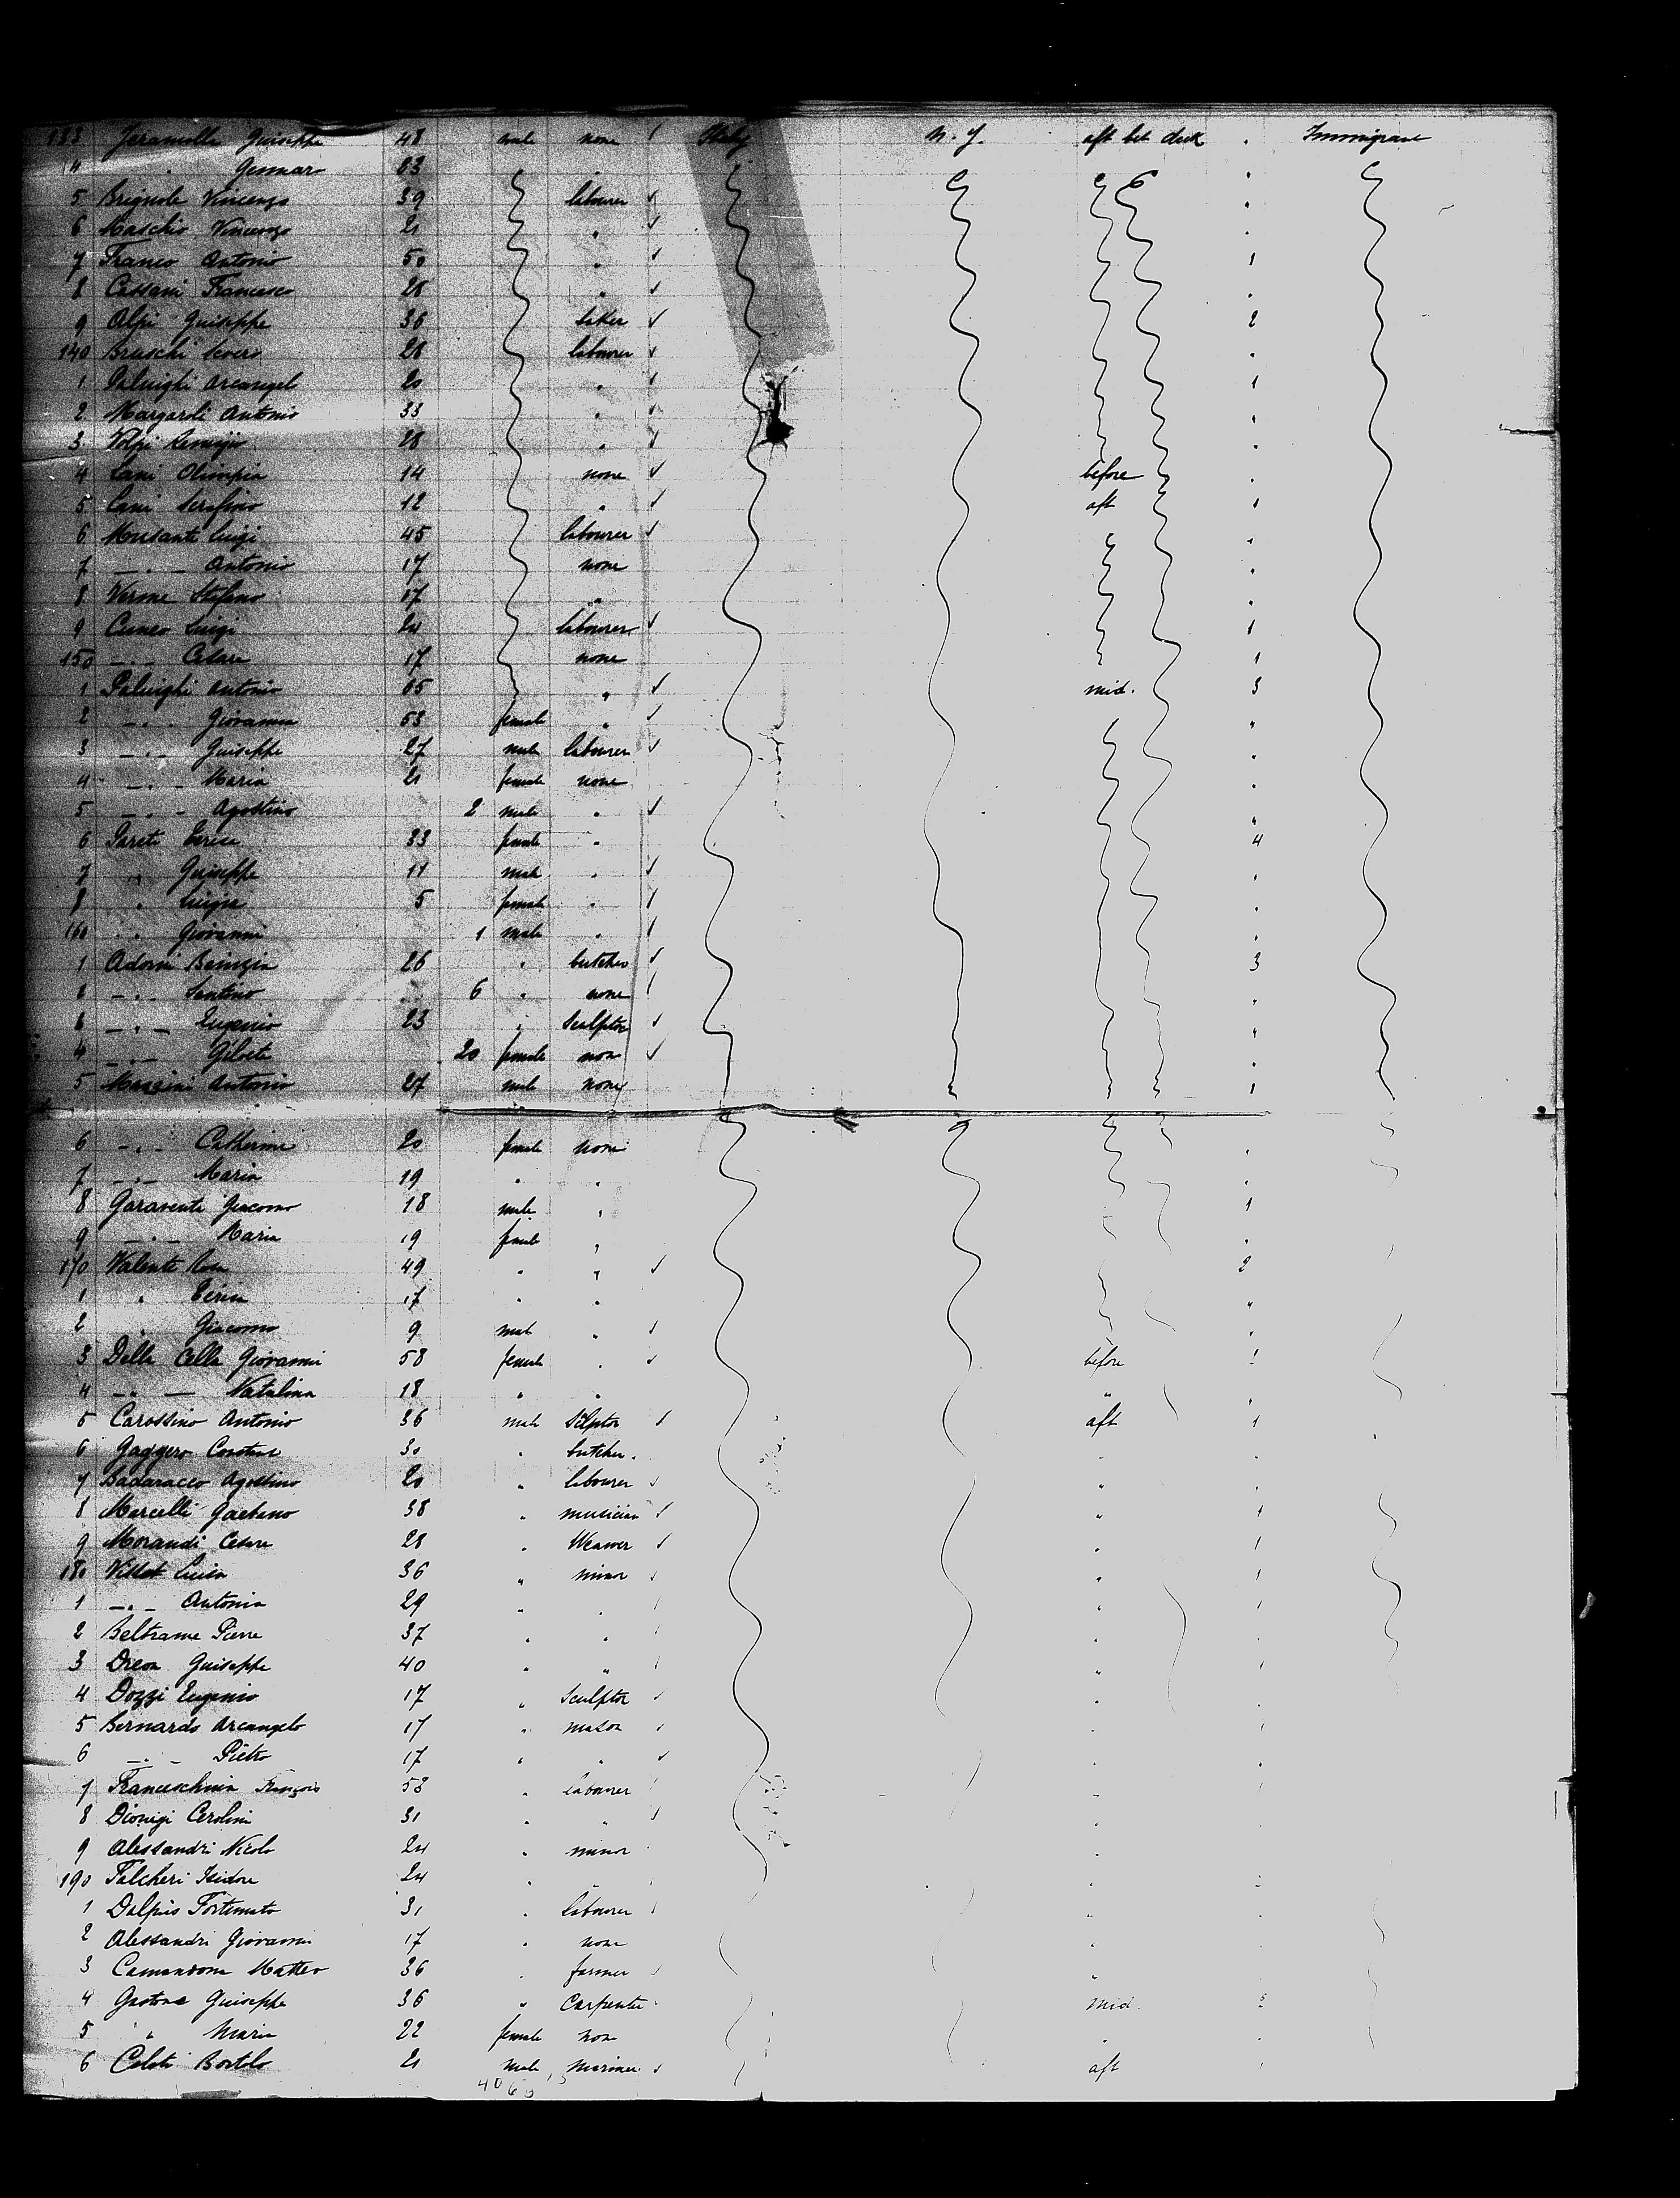 133 Guiseppe 48 male none Italy N. Y. aft bet deck " Immigrant
4 " Gennaro 23 "
5 Brignole Vincenzo 39 labourer
6 Maschio Vincenzo 21 "
7 Franco Antonio 50 " 1
8 Cassani Francesco 28 "
9 Alpi Guiseppe 36 baker 2
140 Bruschi 28 labourer
1 Arcangelo 20 " 1
2 Antonio 33 "
3 Volpi Remigio 28 "
4 Olimpia 14 none before
5 Serafino 12 " aft 1
6 Musante Luigi 45 labourer
7 — " — Antonio 17 none
8 Verme Stefano 17 "
9 Cuneo Luigi 24 labourer 1
150 — " — Cesare 17 none 1
1 Antonio 65 " mid. 3
2 — " — Giovanna 53 female "
3 — " — Guiseppe 27 male labourer
4 — " — Maria 21 female none
5 — " — Agostino 2 male "
6 33 female " 4
7 " Guiseppe 11 male "
8 " Luigia 5 female "
160 " Giovanni 1 male "
1 Adorni 26 " butcher 3
2 — " — Santino 6 " none
— " — Eugenio 23 " Sculptor
4 — " — 20 female none
5 Mazzini Antonio 27 male none 1
6 — " — Catherine 20 female none
7 — " — Maria 19 " "
8 Garaventi Giacomo 18 male " 1
9 — " — Maria 19 female "
170 Valente Rosa 49 " " 2
1 " 17 " "
2 " Giacomo 9 male "
3 Della Cella Giovanni 58 female " before
4 — " — Natalina 18 " " "
5 Carossino Antonio 36 male Sculptor aft 1
6 Gaggero 30 " butcher "
7 Badaracco Agostino 20 " labourer "
8 Marcelli Gaetano 38 " musician " 1
9 Morandi Cesare 28 " Weawer " 1
180 Luisa 36 " minor " 1
1 — " — Antonia 29 " " "
2 Beltrame Pierre 37 " " "
3 Guiseppe 40 " " "
4 Dozzi Eugenio 17 " Sculptor "
5 Bernardo Arcangelo 17 " mason "
6 — " — Pietro 17 " " "
7 François 53 " labourer "
8 Dionigi Cerolini 31 " " "
9 Alessandri Nicolo 24 " minor "
190 Falcheri Isidore 24 " " "
1 Fortunato 31 " labourer "
2 Alessandri Giovanni 17 " none "
3 Matteo 36 " farmer "
4 Guiseppe 36 " Carpenter mid
5 " Maria 22 female none "
6 Bortolo 21 male mariner aft